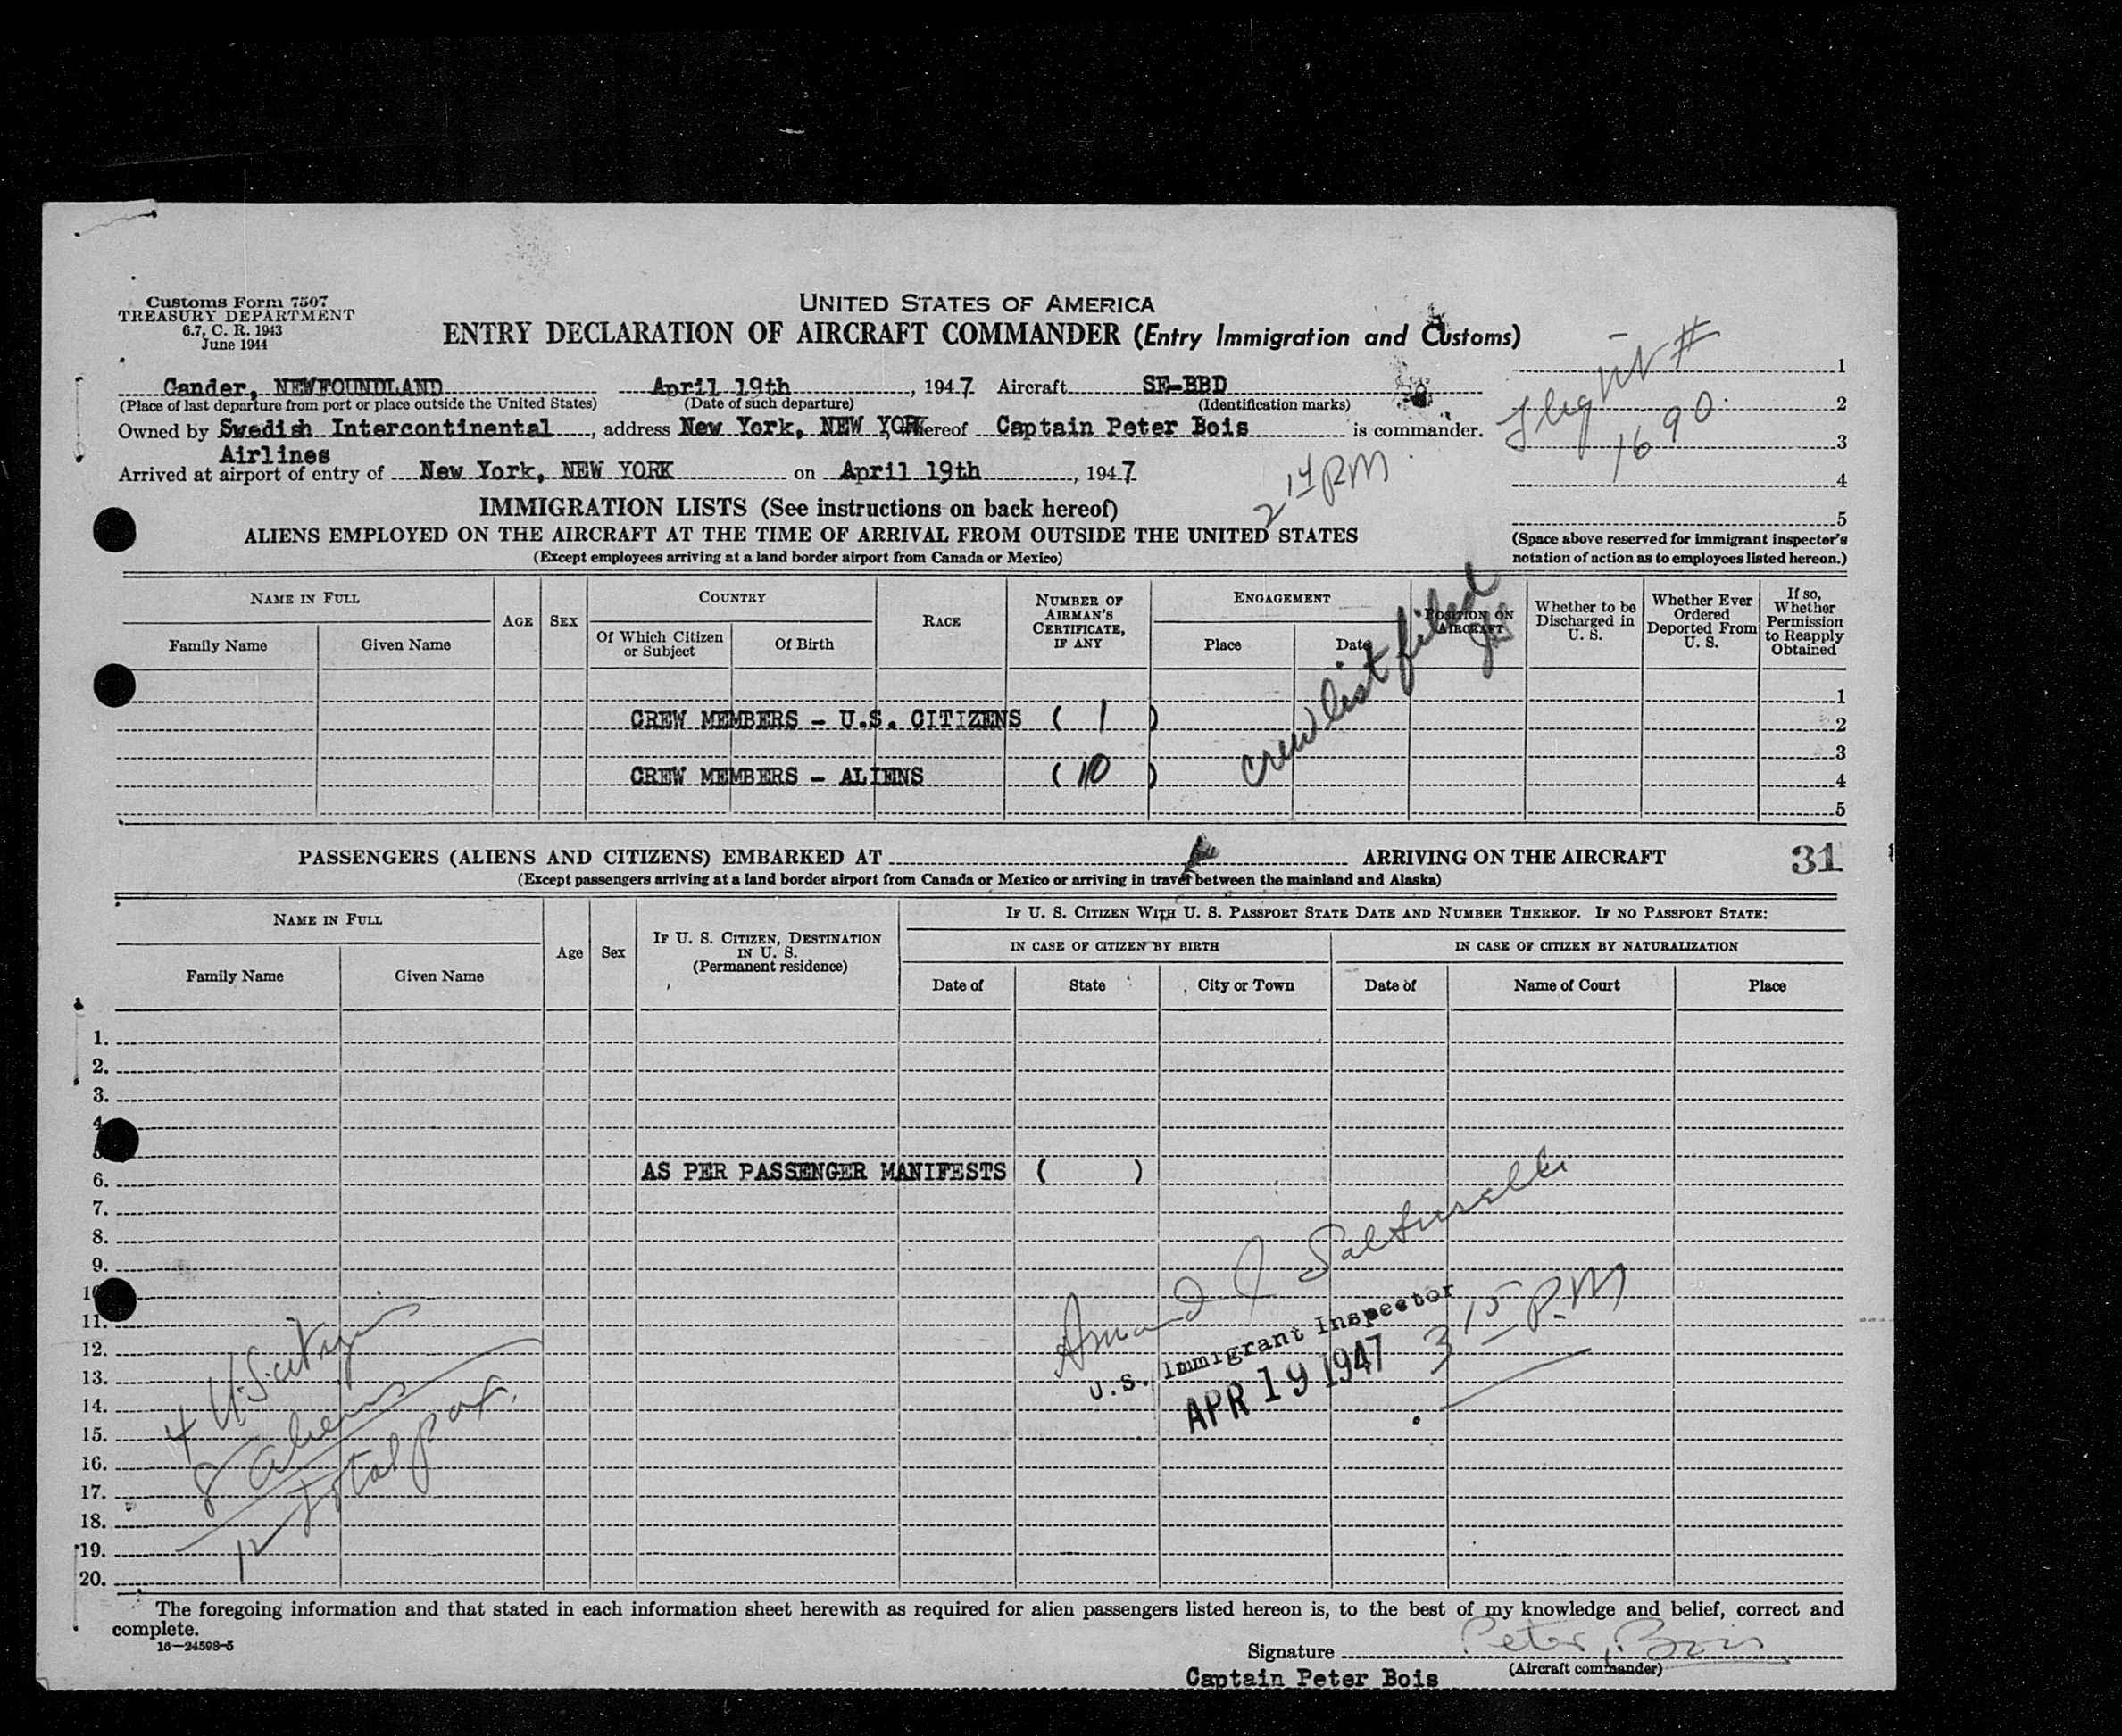 Customs Form 7507
TREASURY DEPARTMENT
6.7, C. R. 1943
June 1944
UNITED STATES OF AMERICA
ENTRY DECLARATION OF AIRCRAFT COMMANDER (Entry Immigration and Customs)
Gander, NEWFOUNDLAND April 19th, 1947 Aircraft SE-BBD
(Place of last departure from port or place outside the United States) (Date of such departure) (Identification marks)
Owned by Swedish Intercontinental, address New York, NEW YORK whereof Captain Peter Bois is commander.
Airlines
Arrived at airport of entry of New York, NEW YORK on April 19th, 1947
2 14 PM
Flight #
1690
1
2
3
4
5
(Space above reserved for immigrant inspector's
notation of action as to employees listed hereon.)
IMMIGRATION LISTS (See instructions on back hereof)
ALIENS EMPLOYED ON THE AIRCRAFT AT THE TIME OF ARRIVAL FROM OUTSIDE THE UNITED STATES
(Except employees arriving at a land border airport from Canada or Mexico)
NAME IN FULL
Family Name Given Name
AGE SEX
COUNTRY
Of Which Citizen or Subject Of Birth
RACE
NUMBER OF AIRMAN'S CERTIFICATE, IF ANY
ENGAGEMENT
Place Date
POSITION ON AIRCRAFT
Whether to be Discharged in U. S.
Whether Ever Ordered Deported From U. S.
If so, Whether Permission to Reapply Obtained
1
CREW MEMBERS - U.S. CITIZENS ( 1 ) 2
3
CREW MEMBERS - ALIENS ( 10 ) 4
5
Crew list filed
PASSENGERS (ALIENS AND CITIZENS) EMBARKED AT ARRIVING ON THE AIRCRAFT 31
(Except passengers arriving at a land border airport from Canada or Mexico or arriving in travel between the mainland and Alaska)
NAME IN FULL
Family Name Given Name
Age Sex
IF U. S. CITIZEN, DESTINATION IN U. S.
(Permanent residence)
IF U. S. CITIZEN WITH U. S. PASSPORT STATE DATE AND NUMBER THEREOF. IF NO PASSPORT STATE:
IN CASE OF CITIZEN BY BIRTH IN CASE OF CITIZEN BY NATURALIZATION
Date of State City or Town Date of Name of Court Place
1.
2.
3.
4
5
6. AS PER PASSENGER MANIFESTS ( )
7.
8.
9.
10
11.
12.
13.
14.
15.
16.
17.
18.
19.
20.
4 U.S. citizens
8 aliens
12 total pax.
Armand J
U.S. Immigrant Inspector
APR 19 1947 3 15 P.M
The foregoing information and that stated in each information sheet herewith as required for alien passengers listed hereon is, to the best of my knowledge and belief, correct and
complete.
16—24598-5
Signature Peter Bois
(Aircraft commander)
Captain Peter Bois